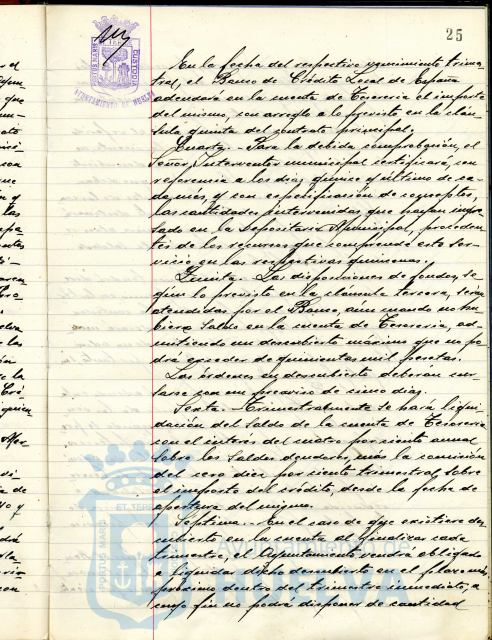 25
PORTUS MARIS
CUSTODIA
AYUNTAMIENTO DE HUELVA
En la fecha del respectivo vencimiento trimes-
tral, el Banco de Crédito Local de España
adeudará en la cuenta de Tesorería el importe
del mismo, con arreglo a lo previsto en la cláu-
sula quinta del contrato principal.
Cuarta.- Para la debida comprobación, el
Señor Interventor municipal certificará, con
referencia a los días quince y último de ca-
da mes, y con especificación de conceptos,
las cantidades intervenidas que hayan ingre-
sado en la Depositaría Municipal, proceden-
tes de los recursos que comprende este ser-
vicio en las respectivas quincenas.
Quinta. Las disposiciones de fondos, se-
gún lo previsto en la cláusula tercera, serán
atendidas por el Banco, aun cuando no hu-
biera saldo en la cuenta de Tesorería, ad-
mitiendo un descubierto máximo que no po-
drá exceder de quinientas mil pesetas.
Las órdenes en descubierto deberán cur-
sarse con un preaviso de cinco días.
Sexta.- Trimestralmente se hará liqui-
dación del saldo de la cuenta de Tesorería
con el interés del cuatro por ciento anual
sobre los saldos deudores, más la comisión
del cero diez por ciento trimestral, sobre
el importe del crédito, desde la fecha de
apertura del mismo.
Séptima.- En el caso de que existiera des-
cubierto en la cuenta al finalizar cada
trimestre, el Ayuntamiento vendrá obligado
a liquidar dicho descubierto en el plazo más
próximo dentro del trimestre inmediato, a
cuyo fin no podrá disponer de cantidad
PORTUS MARIS
ET TERRAE
Ayuntamiento de
HUELVA